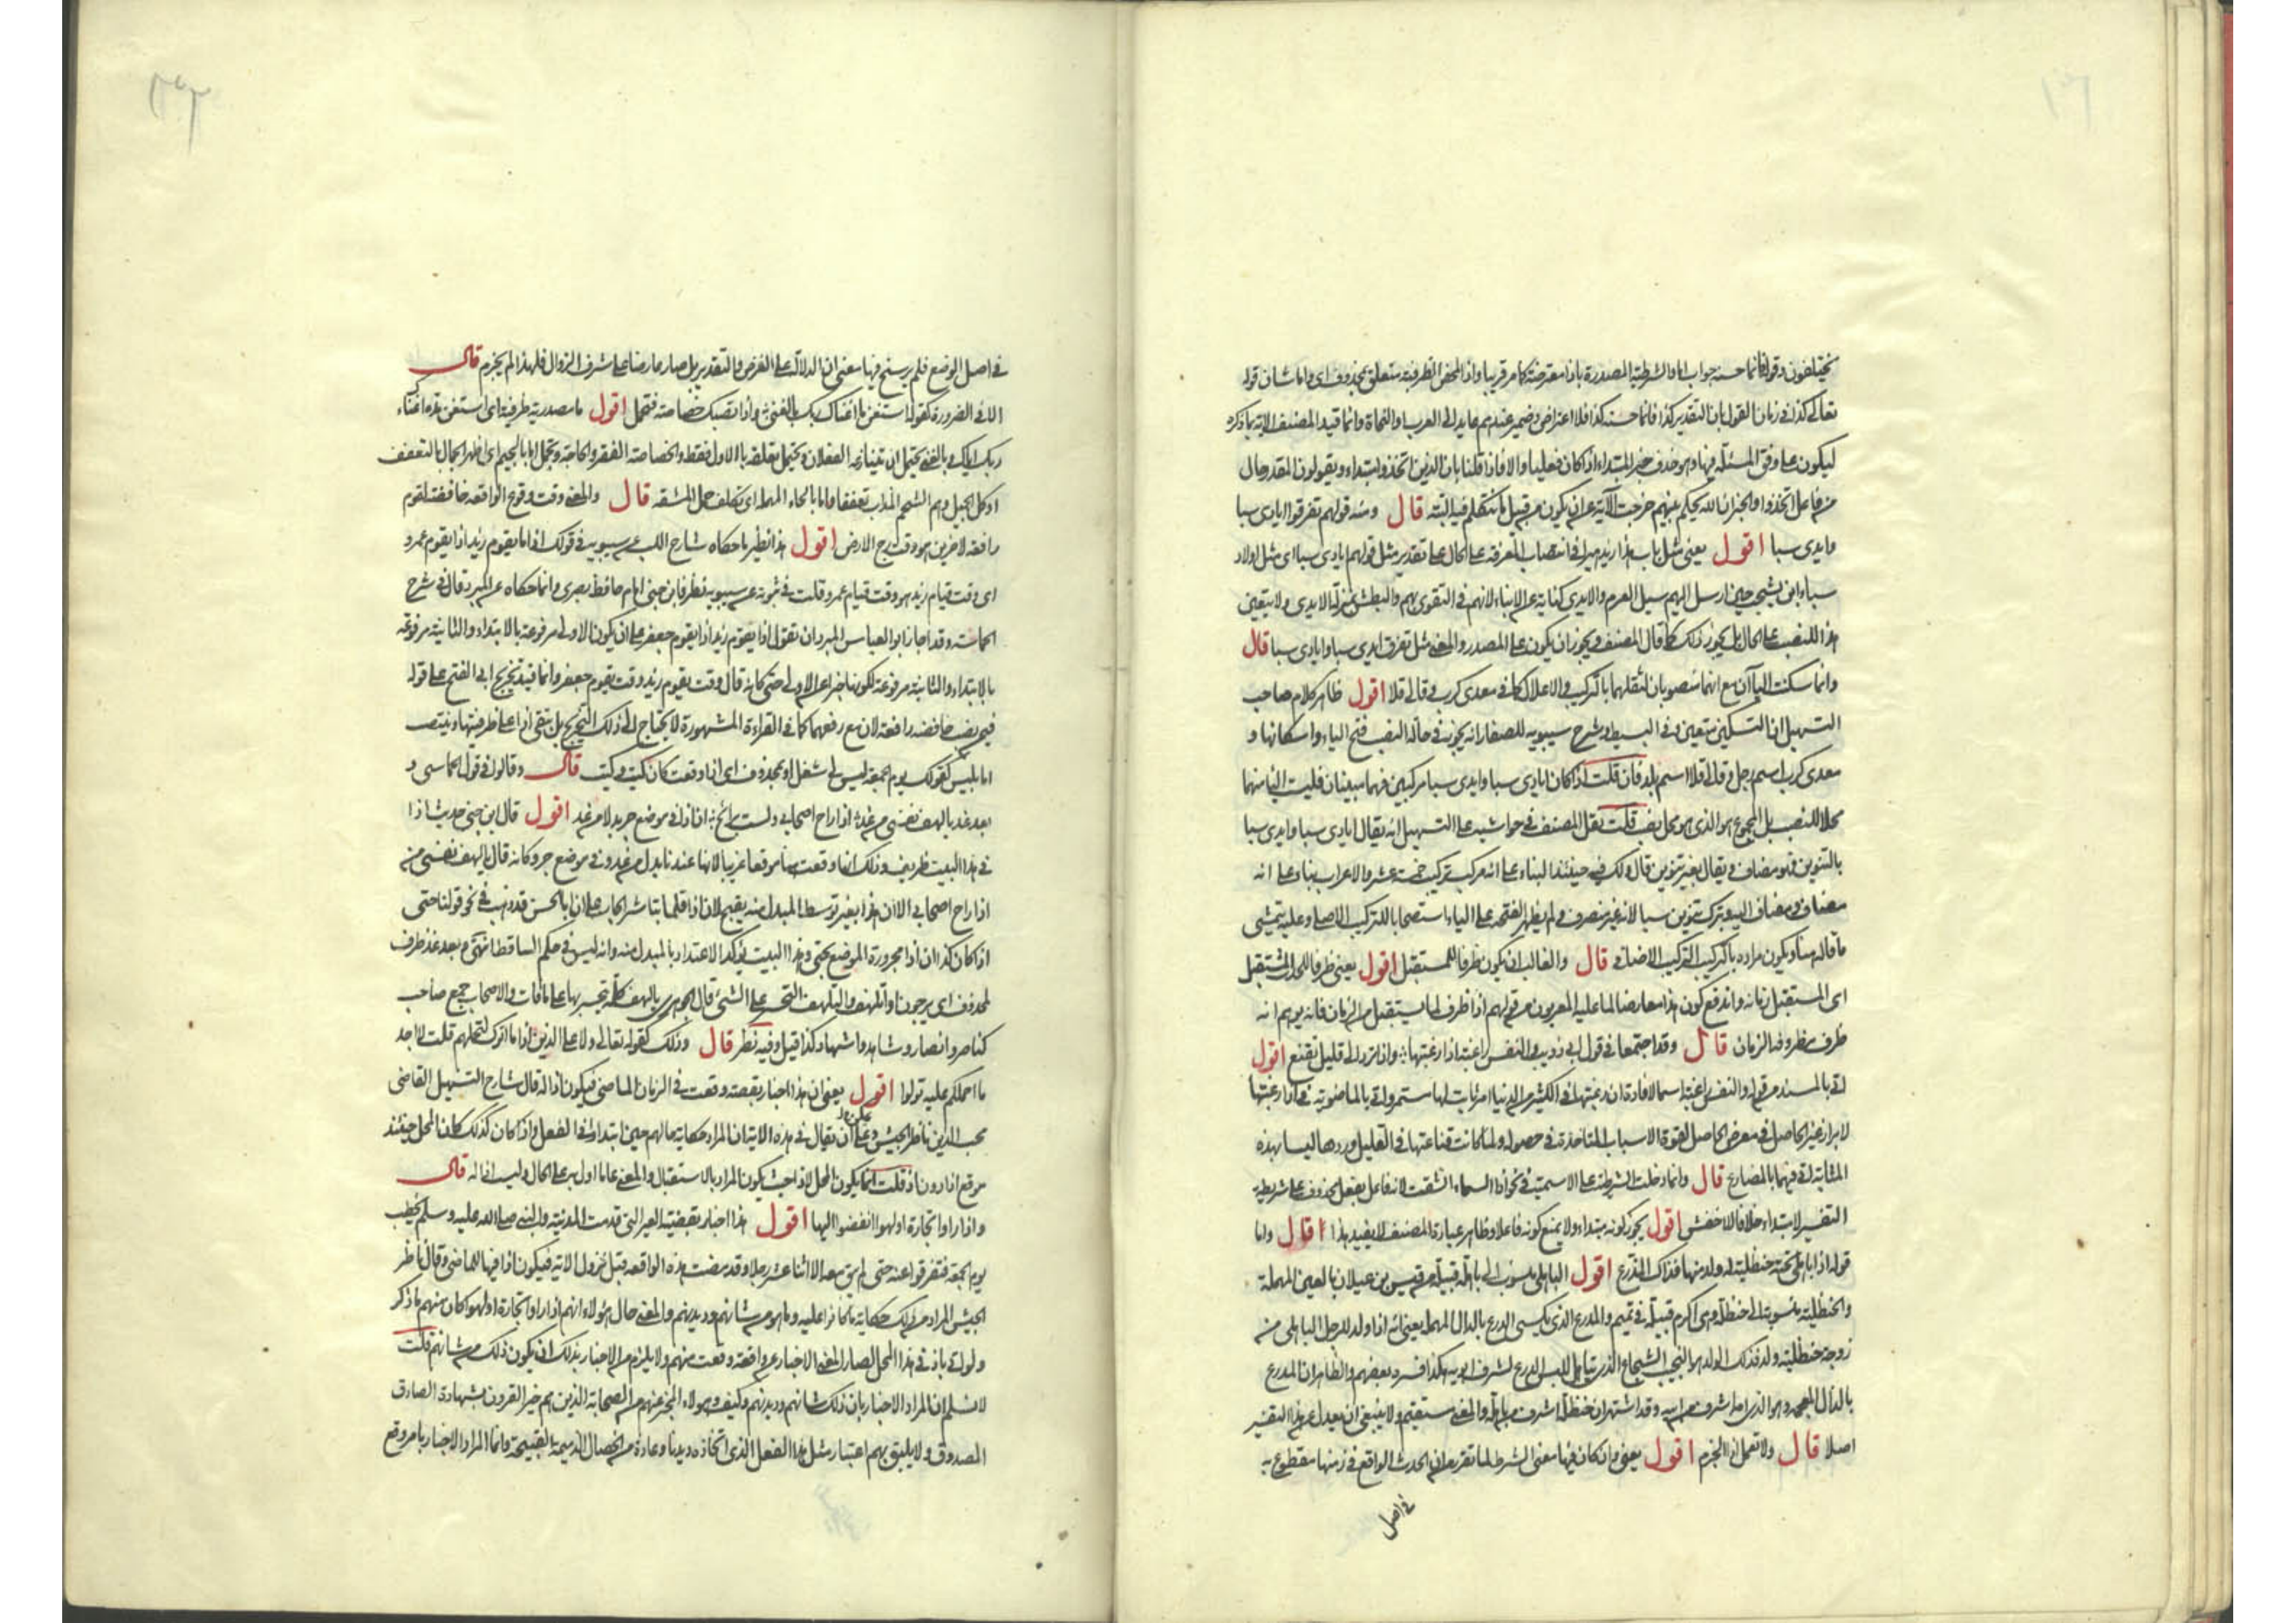 يختلفون وقوله فانما حسنه جواب اما والشرطية المصدرة باذا معترضة كما مر قريبا واذا لمحض الظرفية متعلق بمحذوف اى واما شان قوله
تعالى كذا فى زمان القول بان التقدير كذا فانما حسنه كذا فلا اعتراض وضمير عندهم عايد الى العرب او النحاة وانما قيد المصنف الآية بما ذكره
ليكون على وفق المسئلة فيها وهو حذف خبر المبتداء اذ كان فعليا والا فاذا قلنا بان الذين اتخذوا مبتداء ويقولون المقدر حال
من فاعل اتخذوا والخبر ان الله يحكم بينهم خرجت الآية عن ان يكون من قبيل ما نتكلم فيه البتة قال ومنه قولهم تفرقوا ايادى سبا
وايدى سبا اقول يعنى مثل باب هذا زيد زهيرا فى انتصاب المعرفة على الحال على تقدير مثل قولهم ايادى سبا اى مثل اولاد
سباء ابن يشجب حين ارسل اليهم سيل العرم والايدى كناية عن الابناء لانهم فى التقوى بهم والبطش بمنزلة الايدى ولا يتعين
هذا للنصب على الحال بل يجوز ذلك كما قال المصنف ويجوز ان يكون على المصدر والمعنى مثل تفرق ايدى سبا وايادى سبا قال
وانما سكنت اليا آن مع انهما منصوبان لثقلهما بالتركيب والاعلال كما فى معدى كرب وقالى قلا اقول ظاهر كلام صاحب
التسهيل ان التسكين متعين وفى البسيط وشرح سيبويه للصفار انه يجوز فى حالة النصب فتح الياء واسكانها و
معدى كرب اسم رجل وقالى قلا اسم بلد فان قلت اذا كان ايادى سبا وايدى سبا مركبين فهما مبنيان فليست اليا منهما
محلا للنصب بل المجموع هو الذى هو محل نصب قلت نقل المصنف فى حواشيه على التسهيل انه يقال ايادى سبا وايدى سبا
بالتنوين فهو مضاف ويقال بغير تنوين قال ولك فيه حينئذ البناء على انه مركب تركيب خمسة عشر والاعراب بناء على انه
مضاف ومضاف اليه وترك تنوين سبا لانه غير منصرف ولم يظهر الفتحة على الياء استصحابا للتركيب الاصلى وعليه يتمشى
ما قاله هنا ويكون مراده بالتركيب التركيب الاضافى قال والغالب ان يكون ظرفا للمستقبل اقول يعنى ظرفا للحدث المستقبل
اى المستقبل زمانه واندفع كون هذا معارضا لما عليه المعربون من قولهم اذا ظرف لما يستقبل من الزمان فانه يوهم انه
ظرف مظروفه الزمان قال وقد اجتمعا فى قول ابى ذويب والنفس راغبة اذا رغبتها واذا ترد الى قليل تقنع اقول
اتى بالمسند من قوله والنفس راغبة اسما لافادة ان رغبتها فى الكثير من الدنيا امر ثابت لها مستمر واتى بالماضوية فى اذا رغبتها
لابراز غير الحاصل فى معرض الحاصل لقوة الاسباب المتاخذة فى حصوله ولما كانت قناعتها فى القليل وردها اليه بهذه
المثابة اتى فيهما بالمضارع قال وانما دخلت الشرطية على الاسمية فى نحو اذا السماء انشقت لانه فاعل بفعل محذوف على شريطة
التفسير لا مبتداء خلافا للاخفش اقول يجوز كونه مبتداء ولا يمنع كونه فاعلا وظاهر عبارة المصنف لا يفيد هذا قال واما
قوله اذا باهلى تحته حنظلية له ولد منها فذاك المذرع اقول الباهلى منسوب الى باهلة قبيلة من قيس بن عيلان بالعين المهملة
والحنظلية منسوبة الى حنظلة وهى اكرم قبيلة فى تميم والمدرع الذى يكسى الدرع بالدال المهملة يعنى انه اذا ولد للرجل الباهلى من
زوجة حنظلية ولد فذلك الولد هو النجيب الشجاع الذى يتاهل للبس الدرع لشرف ابويه هكذا فسره بعضهم والظاهر ان المذرع
بالذال المعجمة وهو الذى امه اشرف من ابيه وقد اشتهر ان حنظلة اشرف من باهلة والمعنى مستقيم ولا ينبغى ان يعدل عن هذا التفسير
اصلا قال ولا تعمل اذا الجزم اقول يعنى وان كان فيها معنى الشرط لما تقرر من ان الحدث الواقع فى زمنها مقطوع به
فى اصل
فى اصل الوضع فلم يرسخ فيها معنى ان الدلالة على الفرض والتقدير بل صار عارضا على شرف الزوال فلهذا لم يجزم قال
الا فى الضرورة كقوله استغن ما اغناك ربك بالغنى واذا تصبك خصاصة فتجمل اقول ما مصدرية ظرفية اى استغن مدة اغناء
ربك اياك وبالغنى يحتمل ان يتنازعه الفعلان ويحتمل تعلقه بالاول فقط والخصاصة الفقر والحاجة وتجمل اما بالجيم اى اظهر الجمال بالتعفف
او كل الجميل وهم الشحم المذاب تعففا واما بالحاء المهملة اى تكلف حمل المشقة قال والمعنى وقت وقوع الواقعة خافضة لقوم
رافعة لاخرين هو وقت رج الارض اقول هذا نظير ما حكاه شارح اللب عن سيبويه فى قولك اذا ما يقوم زيد اذا يقوم عمرو
اى وقت قيام زيد هو وقت قيام عمرو قلت فى ثبوته عن سيبويه نظر فابن جنى امام حافظ بصرى وانما حكاه عن المبرد قال فى شرح
الحماسة وقد اجاز ابو العباس المبرد ان تقول اذا يقوم زيد اذا يقوم جعفر على ان يكون الاولى مرفوعة بالابتداء والثانية مرفوعة
بالابتداء والثانية مرفوعة لكونها خبرا عن الاولى حتى كانه قال وقت يقوم زيد وقت يقوم جعفر وانما قيد تخريج ابى الفتح على قوله
فيمن نصب خافضة رافعة لان مع رفعهما كما فى القراءة المشهورة لا يحتاج الى ذلك التخريج بل تبقى اذا على ظرفيتها وينتصب
اما بليس كقولك يوم الجمعة ليس لى شغل او بمحذوف اى اذا وقعت كان كيت وكيت قال وقالوا فى قول الحماسى و
بعد غد يا لهف نفسى من غد اذا راح اصحابى ولست برائح اذا فى موضع جر بدلا من غد اقول قال ابن جنى حديث اذا
فى هذا البيت ظريف وذلك انها وقعت هنا موقعا غريبا لانها عندنا بدل من غد وفى موضع جر وكانه قال يا لهف نفسى من
اذا راح اصحابى الا ان هذا بغير توسط المبدل منه يقبح لان اذا قلما تباشر الجار على ان ابا الحسن قد ذهب فى نحو قولنا حتى
اذا كان كذا ان اذا مجرورة الموضع بحتى وهذا البيت يؤكد الاعتداد بالمبدل منه وانه ليس فى حكم الساقط انتهى وبعد غد ظرف
لمحذوف اى يرجون او اتلهف والتلهف التحسر على الشئ قال الجوهرى يا لهف كلمة يتحسر بها على ما فات والاصحاب جمع صاحب
كناصر وانصار وشاهد واشهاد كذا قيل وفيه نظر قال وذلك كقوله تعالى ولا على الذين اذا ما اتوك لتحملهم قلت لا اجد
ما احملكم عليه تولوا اقول يعنى ان هذا اخبار بقصة وقعت فى الزمان الماضى فيكون اذا له قال شارح التسهيل القاضى
محب الدين ناظر الجيش وعلى ان يقال فى هذه الاية ان المراد حكاية حالهم حين ابتداوا فى الفعل واذا كان كذلك كان المحل حينئذ
موقع اذا دون اذ قلت انما يكون المحل لاذا حيث يكون المراد بالاستقبال والمعنى على ما اول من على الحال وليست اذا له قال
واذا راوا تجارة او لهوا انفضوا اليها اقول هذا اخبار بقضية العير التى قدمت المدينة والنبى صلى الله عليه وسلم يخطب
يوم الجمعة فتفرقوا عنه حتى لم يبق معه الا اثنا عشر رجلا وقد مضت هذه الواقعة قبل نزول الاية فيكون اذا فيها للماضى وقال ناظر
الجيش المراد من ذلك حكاية ما كانوا عليه وما هو من شانهم وديدنهم والمعنى حال هؤلاء انهم اذا راوا تجارة او لهوا كان منهم ما ذكر
ولو اتى باذ فى هذا المحل لصار المعنى الاخبار عن واقعة وقعت منهم ولا يلزم من الاخبار بذلك ان يكون ذلك من شانهم قلت
لا نسلم ان المراد الاخبار بان ذلك شانهم وديدنهم وكيف وهولاء المخبر عنهم من الصحابة الذين هم خير القرون بشهادة الصادق
المصدوق ولا يليق بهم اعتبار مثل هذا الفعل الذى اتخاذه ديدنا وعادة من الخصال الذميمة القبيحة وانما المراد الاخبار بامر وقع